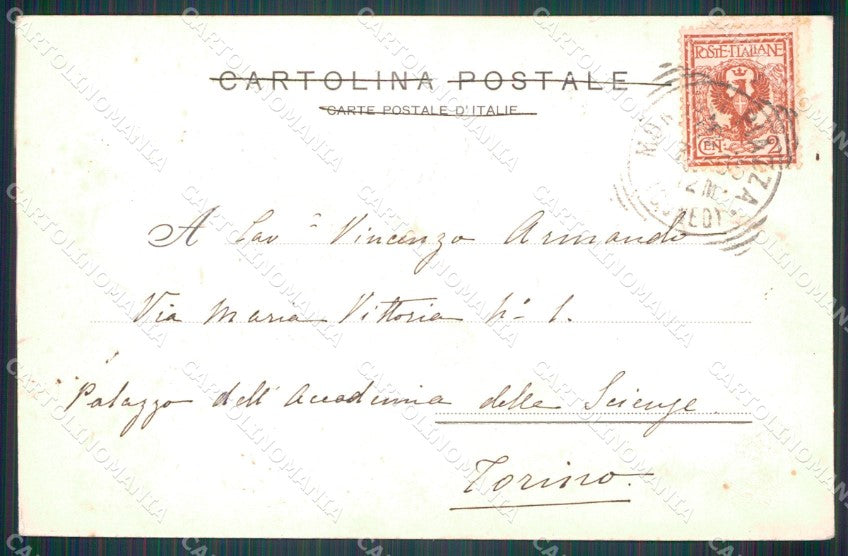 CARTOLINA POSTALE
CARTE POSTALE D'ITALIE
POSTE·ITALIANE
CEN. 2
A Cav Vincenzo Armando
Via Maria Vittoria No 1.
Palazzo dell'Accademia delle Scienze.
Torino.
CARTOLINOMANIA